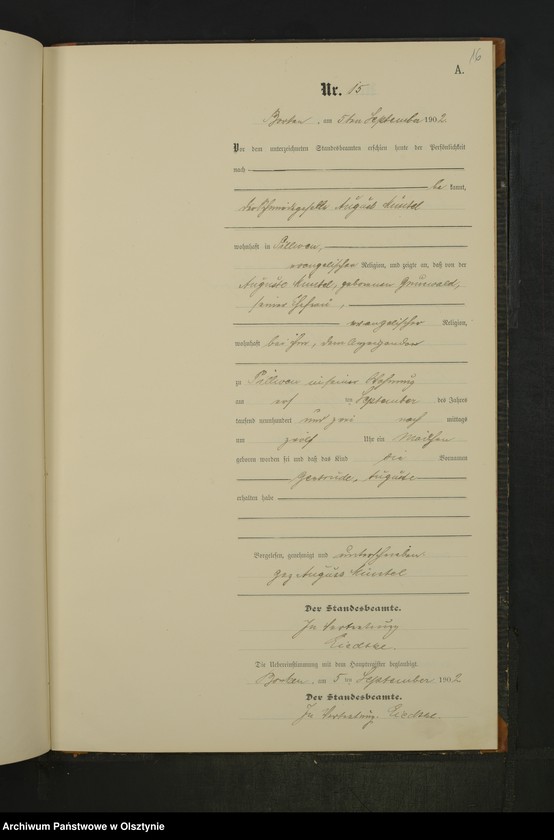 16
A.
Nr. 15
Borken, am 5ten September 1902
Vor dem unterzeichneten Standesbeamten erschien heute der Persönlichkeit
nach
be kannt,
der Schmiedegeselle August
wohnhaft in
evangelischer Religion, und zeigte an, daß von der
Auguste geborenen Grunwald,
seiner Ehefrau,
evangelischer Religion,
wohnhaft bei ihm, dem Anzeigenden
zu in seiner Wohnung
am ten September des Jahres
tausend neunhundert und zwei nach mittags
um zwölf Uhr ein Mädchen
geboren worden sei und daß das Kind die Vornamen
Gertrude, Auguste
erhalten habe
Vorgelesen, genehmigt und unterschrieben
gez. August
Der Standesbeamte.
In Vertretung
Die Uebereinstimmung mit dem Hauptregister beglaubigt.
Borken, am 5ten September 1902
Der Standesbeamte.
In Vertretung
Archiwum Państwowe w Olsztynie